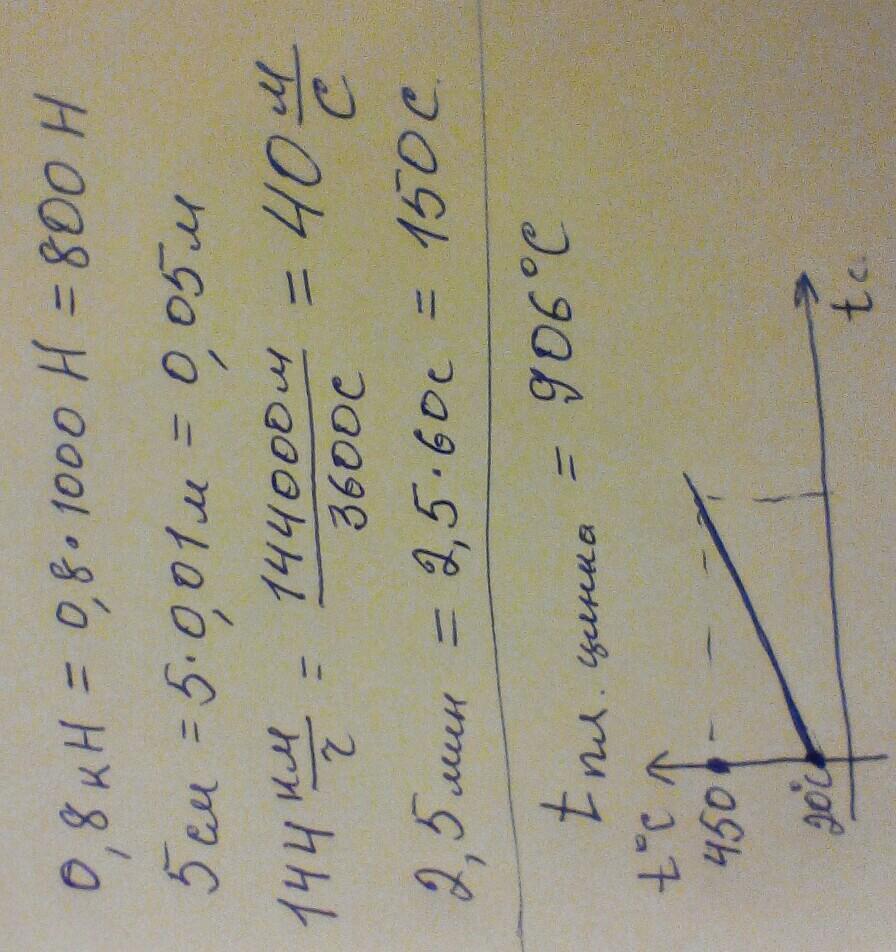 0,8 кН = 0,8·1000 Н = 800 Н
5 см = 5·0,01 м = 0,05 м
144 км/ч = 144000 м/3600 с = 40 м/с
2,5 мин = 2,5·60 с = 150 с.
t пл. цинка = 906°С
t°С
450
20°С
t с.